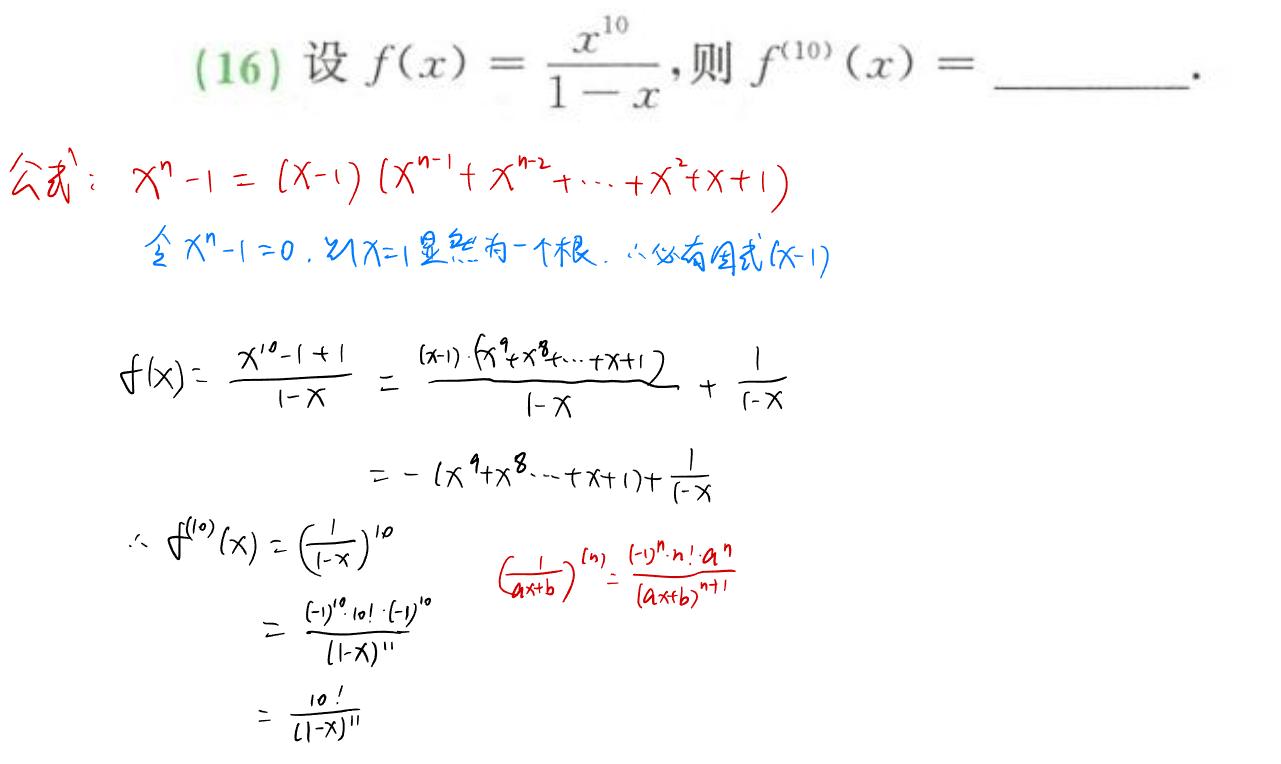 (16) 设 f(x) = \frac{x^{10}}{1-x}, 则 f^{(10)}(x) = ________.
公式: x^n - 1 = (x-1)(x^{n-1} + x^{n-2} + ⋯ + x^2 + x + 1)
令 x^n - 1 = 0, 则 x=1 显然为一个根. ∴必有因式(x-1)
f(x) = \frac{x^{10}-1+1}{1-x} = \frac{(x-1)·(x^9+x^8+⋯+x+1)}{1-x} + \frac{1}{1-x}
= -(x^9+x^8⋯+x+1) + \frac{1}{1-x}
∴ f^{(10)}(x) = (\frac{1}{1-x})^{10}
(\frac{1}{ax+b})^{(n)} = \frac{(-1)^n·n!·a^n}{(ax+b)^{n+1}}
= \frac{(-1)^{10}·10!·(-1)^{10}}{(1-x)^{11}}
= \frac{10!}{(1-x)^{11}}